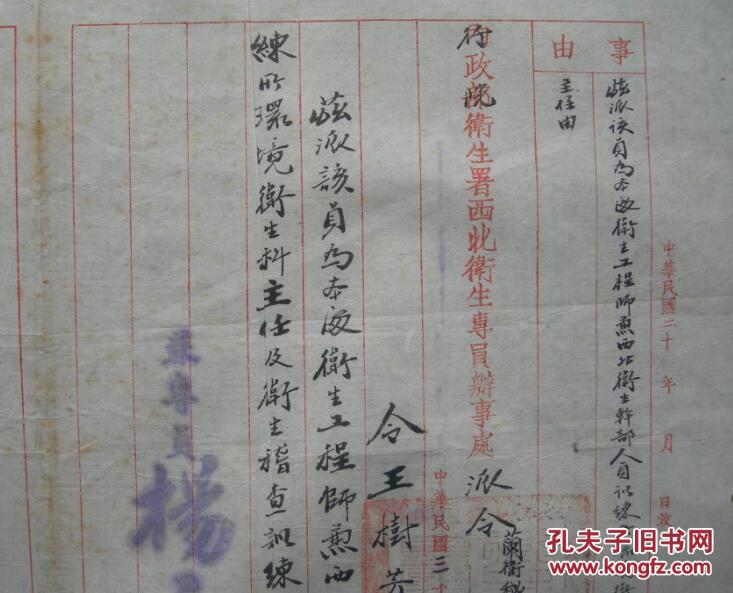 事由
茲派該員為本處衛生工程師兼西北衛生幹部人員訓練
主任由
中華民國二十 年 月 日收
行政院衛生署西北衛生專員辦事處 派令
蘭衛
中華民國三十
令王樹芳
茲派該員為本處衛生工程師兼西
練所環境衛生科主任及衛生稽查訓練
兼專員 楊
孔夫子旧书网
www.kongfz.com